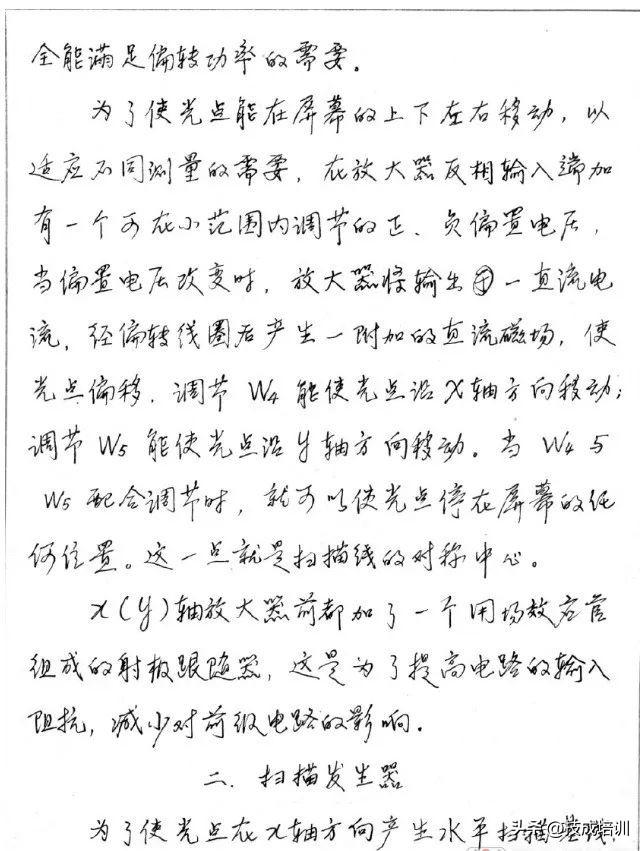 全能满足偏转功率的需要。
为了使光点能在屏幕的上下左右移动，以
适应不同测量的需要，在放大器反相输入端加
有一个可在小范围内调节的正、负偏置电压，
当偏置电压改变时，放大器将输出±一直流电
流，经偏转线圈后产生一附加的直流磁场，使
光点偏移．调节 W4 能使光点沿 X 轴方向移动；
调节 W5 能使光点沿 y 轴方向移动。当 W4 与
W5 配合调节时，就可以使光点停在屏幕的任
何位置。这一点就是扫描线的对称中心。
x(y)轴放大器前都加了一个用场效应管
组成的射极跟随器，这是为了提高电路的输入
阻抗，减少对前级电路的影响。
二．扫描发生器
为了使光点在 x 轴方向产生水平扫描基线，
头条@技成培训